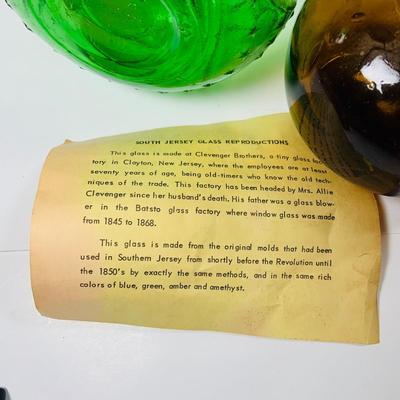 SOUTH JERSEY GLASS REPRODUCTIONS
This glass is made at Clevenger Brothers, a tiny glass fac-
tory in Clayton, New Jersey, where the employees are at least
seventy years of age, being old-timers who know the old tech-
niques of the trade. This factory has been headed by Mrs. Allie
Clevenger since her husband's death. His father was a glass blow-
er in the Batsto glass factory where window glass was made
from 1845 to 1868.
This glass is made from the original molds that had been
used in Southern Jersey from shortly before the Revolution until
the 1850's by exactly the same methods, and in the same rich
colors of blue, green, amber and amethyst.